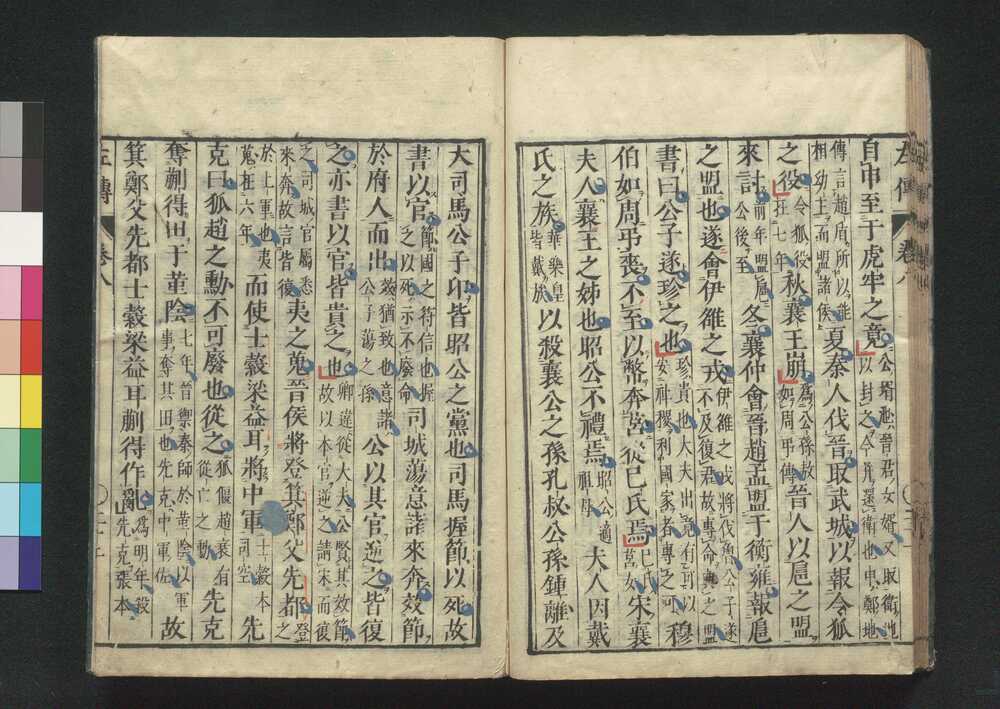 自申至于虎牢之竟公壻池晉君女婿又取衞地以封之今并還衞也申鄭地
傳言趙盾所以能相幼主而盟諸侯夏秦人伐晉取武城以報令狐
之役令狐役在七年秋襄王崩爲公孫敖如周弔傳晉人以扈之盟
來討前年盟扈公後至冬襄仲會晉趙孟盟于衡雍報扈
之盟也遂會伊雒之戎伊雒之戎將伐魯公子遂不及復君故專命與之盟
書曰公子遂珍之也珍貴也大夫出竟有可以安社稷利國家者專之可穆
伯如周弔喪不至以幣奔莒從己氏焉己氏莒女宋襄
夫人襄王之姊也昭公不禮焉昭公適祖母夫人因戴
氏之族華樂皇皆戴族以殺襄公之孫孔叔公孫鍾離及
左傳 卷八
大司馬公子卬皆昭公之黨也司馬握節以死故
書以官節國之符信也握之以死示不廢命司城蕩意諸來奔效節
於府人而出效猶致也意諸公子蕩之孫公以其官逆之皆復
之亦書以官皆貴之也卿違從大夫公賢其效節故以本官逆之請宋而復
之司城官屬悉來奔故言皆復夷之蒐晉侯將登箕鄭父先都登之
於上軍也夷蒐在六年而使士縠梁益耳將中軍士縠本司空先
克曰狐趙之勳不可廢也從之狐偃趙衰有從亡之勳先克
奪蒯得田于堇陰七年晉禦秦師於堇陰以軍事奪其田也先克中軍佐故
箕鄭父先都士縠梁益耳蒯得作亂爲明年殺先克張本
左傳 卷八